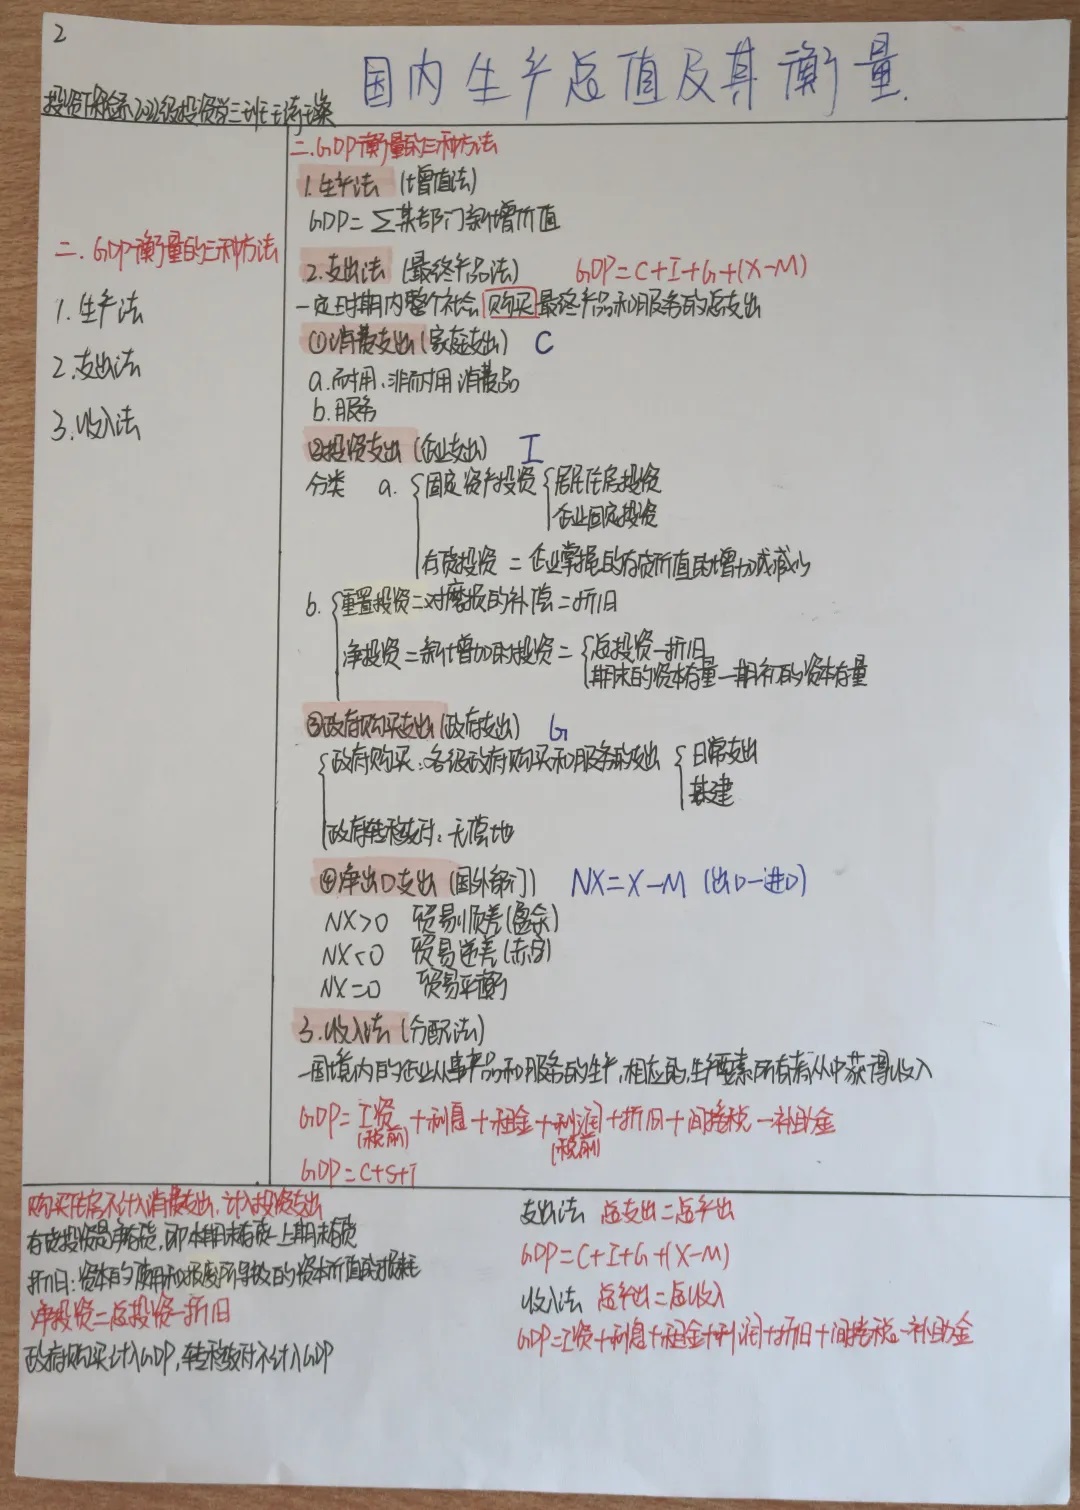 2
国内生产总值及其衡量.
投资保险系202级投资学三班王
二.GDP衡量的三种方法
1.生产法
2.支出法
3.收入法
二.GDP衡量的三种方法
1.生产法 (增值法)
GDP=∑某部门新增价值
2.支出法 (最终产品法) GDP=C+I+G+(X-M)
一定时期内整个社会购买最终产品和服务的总支出
①消费支出(家庭支出) C
a.耐用、非耐用消费品
b.服务
②投资支出(企业支出) I
分类 a. { 固定资产投资 { 居民住房投资
企业固定投资
存货投资 = 企业掌握的存货价值的增加或减少
b. { 重置投资=对磨损的补偿=折旧
净投资=新增加的投资= { 总投资-折旧
期末的资本存量-期初的资本存量
③政府购买支出(政府支出) G
{ 政府购买:各级政府购买和服务的支出 { 日常支出
基建
政府转移支付:无偿地
④净出口支出(国外部门) NX=X-M (出口-进口)
NX>0 贸易顺差(盈余)
NX<0 贸易逆差(赤字)
NX=0 贸易平衡
3.收入法(分配法)
一国境内的企业从事产品和服务的生产,相应的,生产要素所有者从中获得收入
GDP=工资+利息+租金+利润+折旧+间接税-补助金
(税前) (税前)
GDP=C+S+T
购买住房不计入消费支出,计入投资支出
存货投资是净存货,即本期末存货-上期末存货
折旧:资本的使用和报废所导致的资本价值的损耗
净投资=总投资-折旧
政府购买计入GDP,转移支付不计入GDP
支出法 总支出=总产出
GDP=C+I+G+(X-M)
收入法 总产出=总收入
GDP=工资+利息+租金+利润+折旧+间接税-补助金